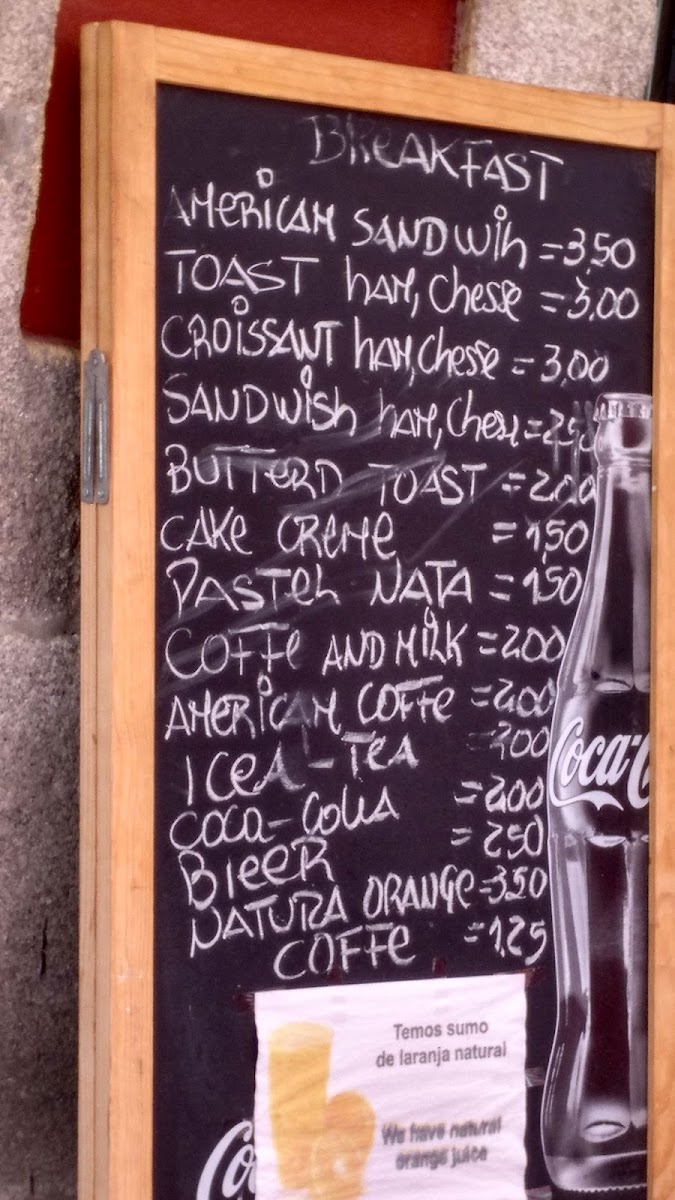 BREAKFAST
AMERICAN SANDWIH =3,50
TOAST HAM, CHESSE =3,00
CROISSANT HAM,CHESSE =3,00
SANDWISH HAM, CHESE =2,5
BUTTERD TOAST =2,00
CAKE CREME =1,50
PASTEL NATA =1,50
COFFE AND MILK =2,00
AMERICAN COFFE =2,00
ICEA-TEA =200
COCA-COLLA =2,00
BIEER =250
NATURA ORANGE=3,50
COFFE =1,25
Temos sumo
de laranja natural
We have natural
orange juice
Coca-C
Co